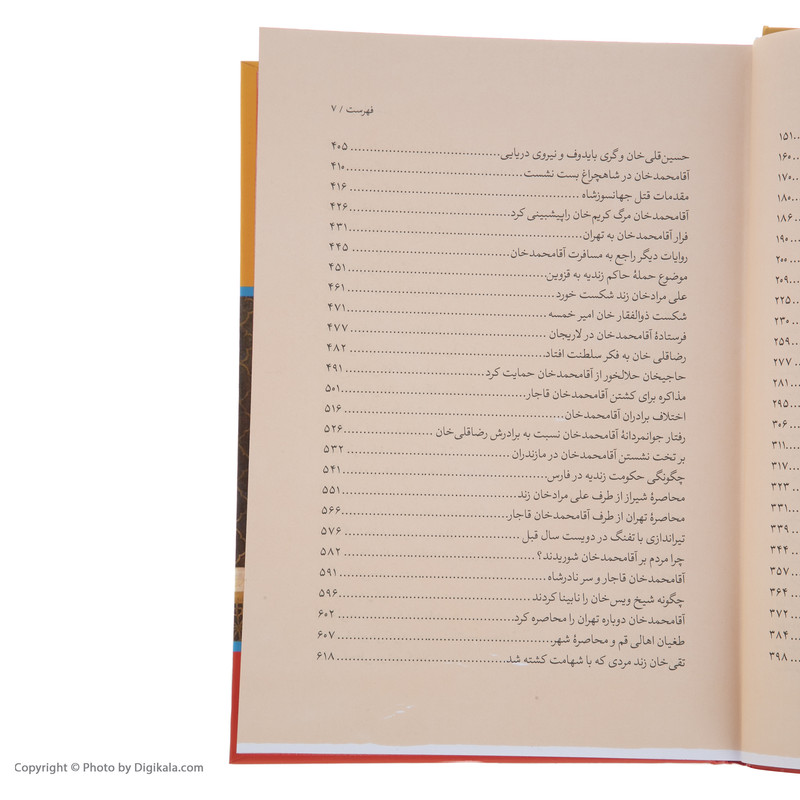 فهرست / ۷
حسین‌قلی‌خان وگری بایدوف و نیروی دریایی ........ ۴۰۵
آقامحمدخان در شاهچراغ بست نشست ........ ۴۱۰
مقدمات قتل جهانسوزشاه ........ ۴۱۶
آقامحمدخان مرگ کریم‌خان راپیشبینی کرد ........ ۴۲۶
فرار آقامحمدخان به تهران ........ ۴۳۱
روایات دیگر راجع به مسافرت آقامحمدخان ........ ۴۴۵
موضوع حملهٔ حاکم زندیه به قزوین ........ ۴۵۱
علی مرادخان زند شکست خورد ........ ۴۶۱
شکست ذوالفقار خان امیر خمسه ........ ۴۷۱
فرستادهٔ آقامحمدخان در لاریجان ........ ۴۷۷
رضاقلی خان به فکر سلطنت افتاد ........ ۴۸۲
حاجیخان حلالخور از آقامحمدخان حمایت کرد ........ ۴۹۱
مذاکره برای کشتن آقامحمدخان قاجار ........ ۵۰۱
اختلاف برادران آقامحمدخان ........ ۵۱۶
رفتار جوانمردانهٔ آقامحمدخان نسبت به برادرش رضاقلی‌خان ........ ۵۲۶
بر تخت نشستن آقامحمدخان در مازندران ........ ۵۳۲
چگونگی حکومت زندیه در فارس ........ ۵۴۱
محاصرهٔ شیراز از طرف علی مرادخان زند ........ ۵۵۱
محاصرهٔ تهران از طرف آقامحمدخان قاجار ........ ۵۶۶
تیراندازی با تفنگ در دویست سال قبل ........ ۵۷۶
چرا مردم بر آقامحمدخان شوریدند؟ ........ ۵۸۲
آقامحمدخان قاجار و سر نادرشاه ........ ۵۹۱
چگونه شیخ ویس‌خان را نابینا کردند ........ ۵۹۶
آقامحمدخان دوباره تهران را محاصره کرد ........ ۶۰۲
طغیان اهالی قم و محاصرهٔ شهر ........ ۶۰۷
تقی‌خان زند مردی که با شهامت کشته شد ........ ۶۱۸
۱۵۱
۱۶۰
۱۷۰
۱۸۰
۱۸۶
۱۹۰
۲۰۰
۲۰۹
۲۲۵
۲۳۰
۲۵۹
۲۷۷
۲۸۱
۲۹۵
۳۰۶
۳۱۱
۳۱۷
۳۲۳
۳۳۱
۳۳۹
۳۴۴
۳۵۷
۳۶۴
۳۷۲
۳۸۴
۳۹۸
Copyright © Photo by Digikala.com